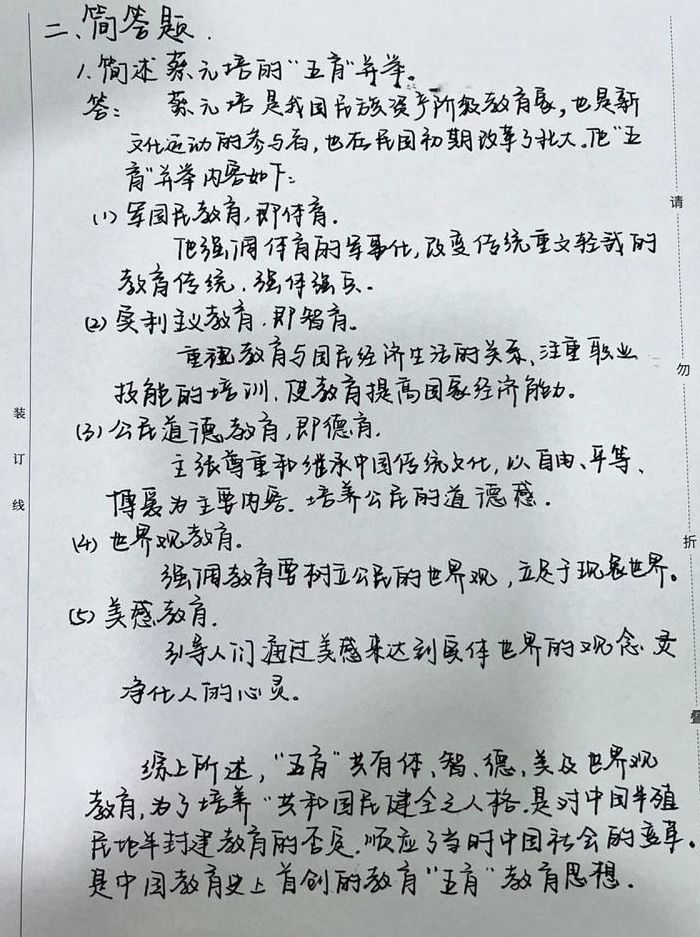 二、简答题.
1.简述蔡元培的“五育”并举。
答: 蔡元培是我国民族资产阶级教育家,也是新
文化运动的参与者,也在民国初期改革了北大。他“五
育”并举内容如下:
(1) 军国民教育,即体育.
他强调体育的军事化,改变传统重文轻武的
教育传统.强体强兵.
(2) 实利主义教育.即智育。
重视教育与国民经济生活的关系、注重职业
技能的培训、使教育提高国家经济能力。
(3) 公民道德教育,即德育.
主张尊重和继承中国传统文化,以自由、平等、
博爱为主要内容.培养公民的道德感.
(4) 世界观教育。
强调教育要树立公民的世界观,立足于现象世界。
(5) 美感教育.
引导人们通过美感来达到实体世界的观念.
净化人的心灵。
综上所述,“五育”共有体、智、德、美及世界观
教育,为了培养“共和国民健全之人格.是对中国半殖
民地半封建教育的否定.顺应了当时中国社会的变革.
是中国教育史上首创的教育“五育”教育思想.
装
订
线
请
勿
折
叠